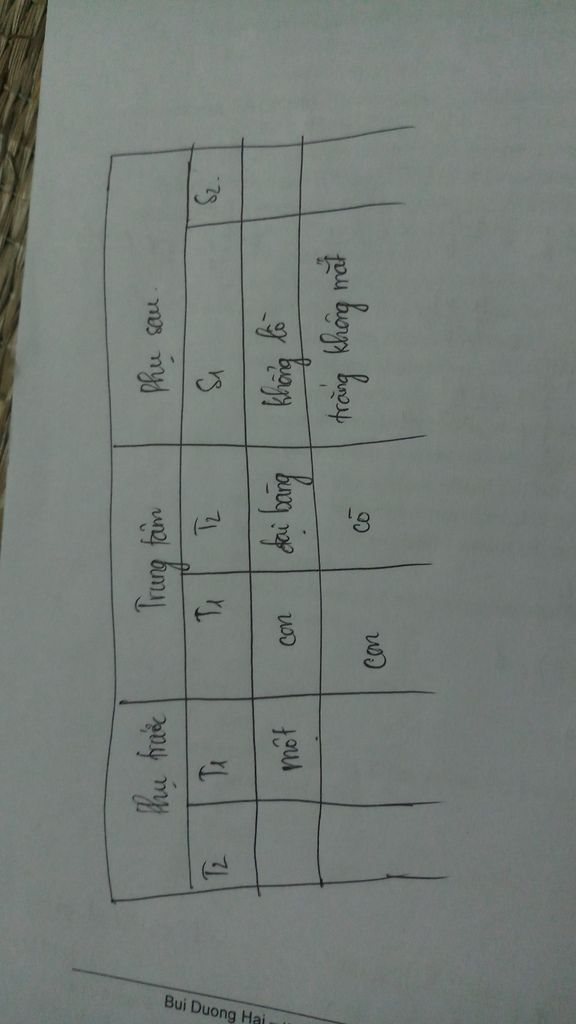 Phụ trước Trung tâm Phụ sau.
T2 T1 T1 T2 S1 S2.
một con đại bàng khổng lồ
con cò trắng không mắt
Bui Duong Hai